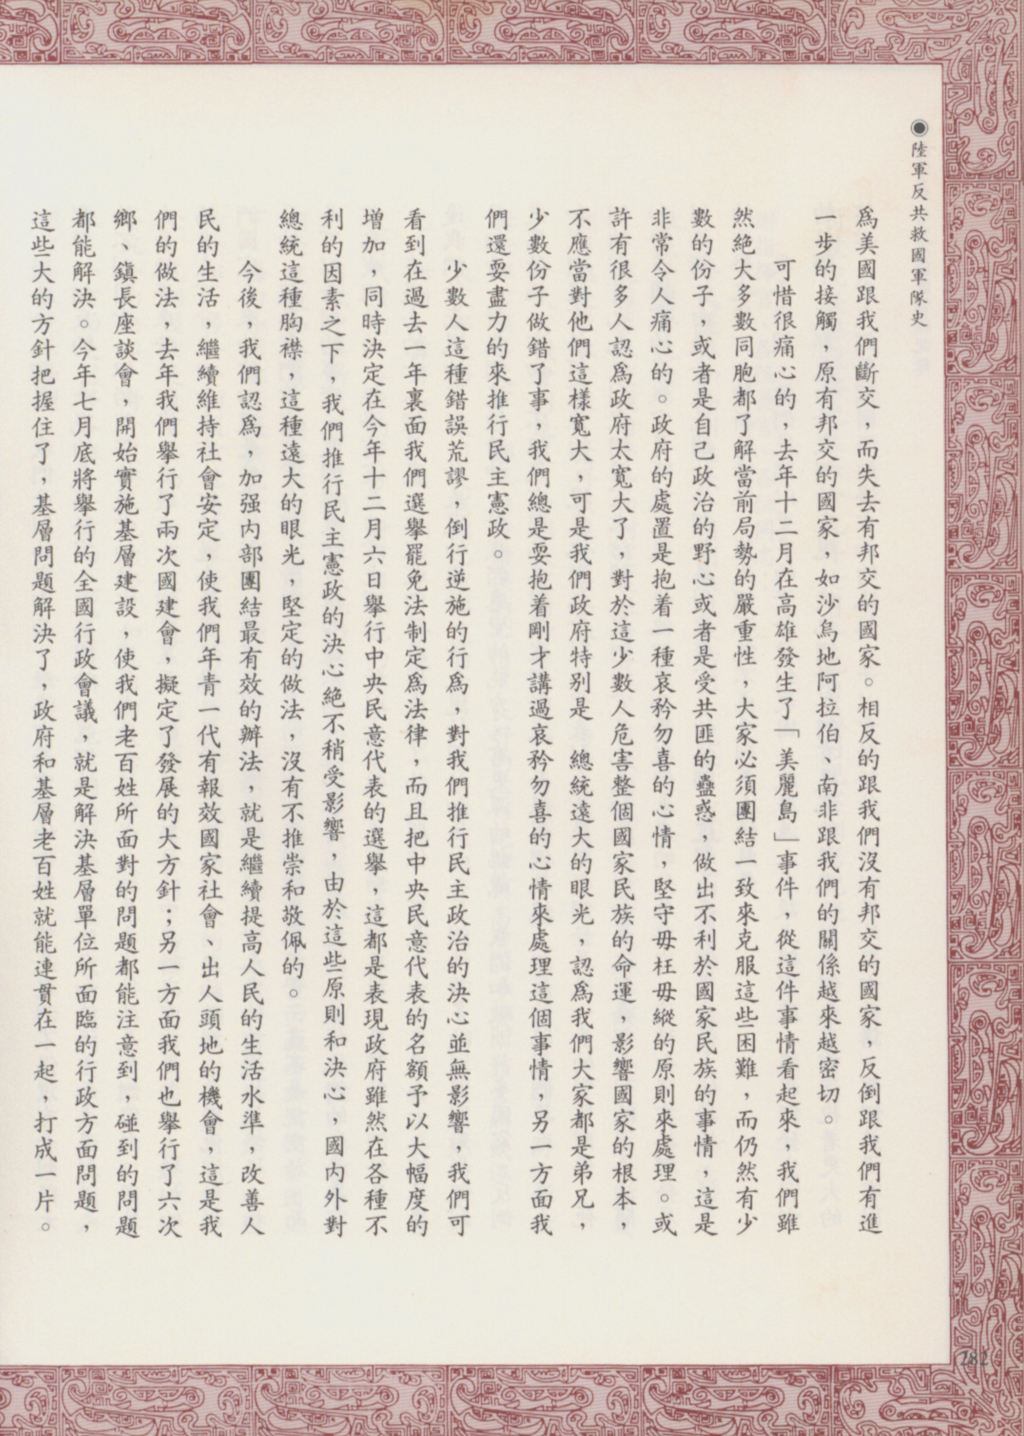 ◉陸軍反共救國軍隊史
爲美國跟我們斷交，而失去有邦交的國家。相反的跟我們沒有邦交的國家，反倒跟我們有進
一步的接觸，原有邦交的國家，如沙烏地阿拉伯、南非跟我們的關係越來越密切。
可惜很痛心的，去年十二月在高雄發生了「美麗島」事件，從這件事情看起來，我們雖
然絕大多數同胞都了解當前局勢的嚴重性，大家必須團結一致來克服這些困難，而仍然有少
數的份子，或者是自己政治的野心或者是受共匪的蠱惑，做出不利於國家民族的事情，這是
非常令人痛心的。政府的處置是抱着一種哀矜勿喜的心情，堅守毋枉毋縱的原則來處理。或
許有很多人認爲政府太寬大了，對於這少數人危害整個國家民族的命運，影響國家的根本，
不應當對他們這樣寬大，可是我們政府特別是　總統遠大的眼光，認爲我們大家都是弟兄，
少數份子做錯了事，我們總是要抱着剛才講過哀矜勿喜的心情來處理這個事情，另一方面我
們還要盡力的來推行民主憲政。
少數人這種錯誤荒謬，倒行逆施的行爲，對我們推行民主政治的決心並無影響，我們可
看到在過去一年裏面我們選舉罷免法制定爲法律，而且把中央民意代表的名額予以大幅度的
增加，同時決定在今年十二月六日舉行中央民意代表的選舉，這都是表現政府雖然在各種不
利的因素之下，我們推行民主憲政的決心絕不稍受影響，由於這些原則和決心，國內外對
總統這種胸襟，這種遠大的眼光，堅定的做法，沒有不推崇和敬佩的。
今後，我們認爲，加强內部團結最有效的辦法，就是繼續提高人民的生活水準，改善人
民的生活，繼續維持社會安定，使我們年青一代有報效國家社會、出人頭地的機會，這是我
們的做法，去年我們舉行了兩次國建會，擬定了發展的大方針；另一方面我們也舉行了六次
鄉、鎮長座談會，開始實施基層建設，使我們老百姓所面對的問題都能注意到，碰到的問題
都能解決。今年七月底將舉行的全國行政會議，就是解決基層單位所面臨的行政方面問題，
這些大的方針把握住了，基層問題解決了，政府和基層老百姓就能連貫在一起，打成一片。
282